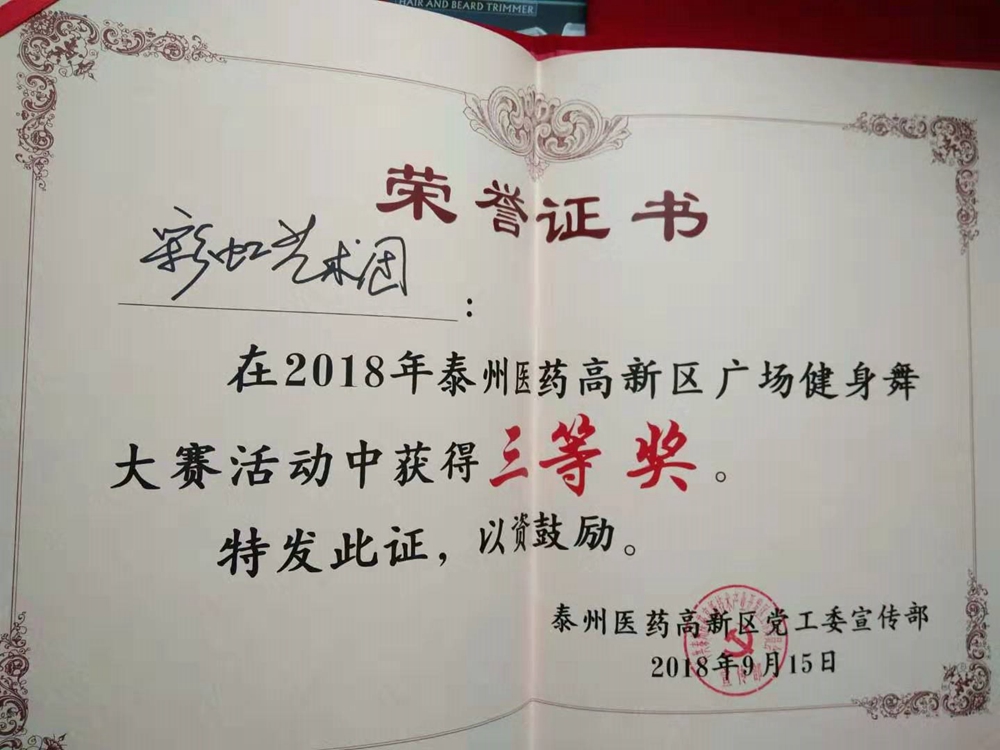 HAIR AND BEARD TRIMMER
荣誉证书
彩虹艺术团
：
在2018年泰州医药高新区广场健身舞
大赛活动中获得三等奖。
特发此证，以资鼓励。
泰州医药高新区党工委宣传部
2018年9月15日
宣传部